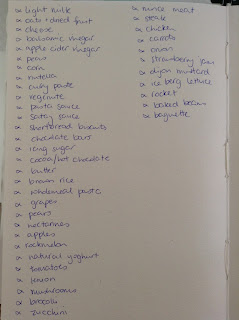 ∝ light milk
∝ oats + dried fruit
∝ cheese
∝ balsamic vinegar
∝ apple cider vinegar
∝ peas
∝ corn
∝ nutella
∝ curry paste
∝ vegemite
∝ pasta sauce
∝ satay sauce
∝ shortbread biscuits
∝ chocolate bars
∝ icing sugar
∝ cocoa/hot chocolate
∝ butter
∝ brown rice
∝ wholemeal pasta
∝ grapes
∝ pears
∝ nectarines
∝ apples
∝ rockmelon
∝ natural yoghurt
∝ tomatoes
∝ lemon
∝ mushrooms
∝ brocolli
∝ zucchini
∝ mince meat
∝ steak
∝ chicken
∝ carrots
∝ onion
∝ strawberry jam
∝ dijon mustard
∝ ice berg lettuce
∝ rocket
∝ baked beans
∝ baguette